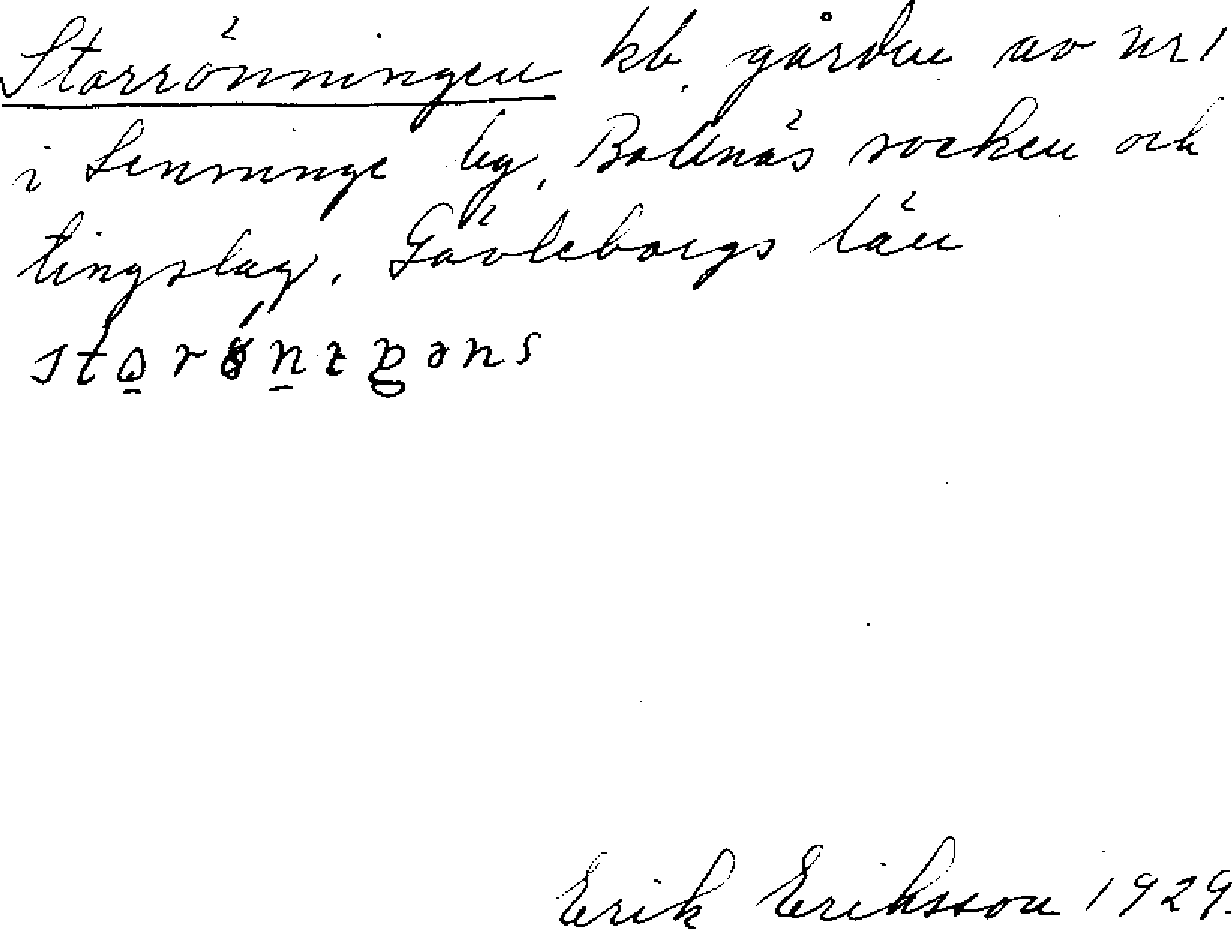 Storrönningen kb. gården av nr 1
i Lenninge by, Bollnäs socken och
tingslag. Gävleborgs län
Erik Eriksson 1929.